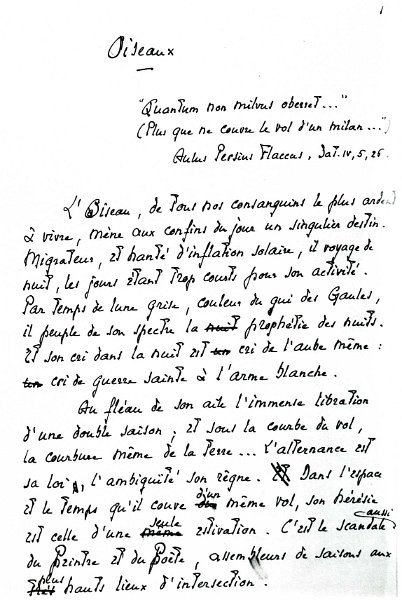 1
Oiseaux
"Quantum non milvus oberret..."
(Plus que ne couvre le vol d'un milan...")
Aulus Persius Flaccus, Sat. IV, 5, 26.
L'Oiseau, de tous nos consanguins le plus ardent
à vivre, mène aux confins du jour un singulier destin.
Migrateur, et hanté d'inflation solaire, il voyage de
nuit, les jours étant trop courts pour son activité.
Par temps de lune grise, couleur du gui des Gaules,
il peuple de son spectre la ~~nuit~~ prophétie des nuits.
Et son cri dans la nuit est ~~un~~ cri de l'aube même :
~~un~~ cri de guerre sainte à l'arme blanche.
Au fléau de son aile l'immense libration
d'une double saison ; et sous la courbe du vol,
la courbure même de la terre... L'alternance est
sa loi, l'ambiguïté son règne. Dans l'espace
et le temps qu'il couve d'un même vol, son hérésie
est celle d'une ~~même~~ seule estivation. C'est le scandale aussi
du Peintre et du Poète, assembleurs de saisons aux
plus hauts lieux d'intersection.